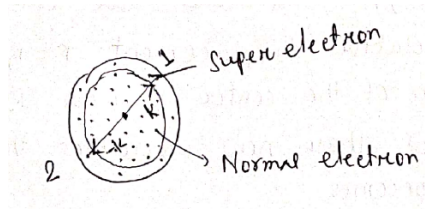 1
Super electron
K
-K
2
Normal electron